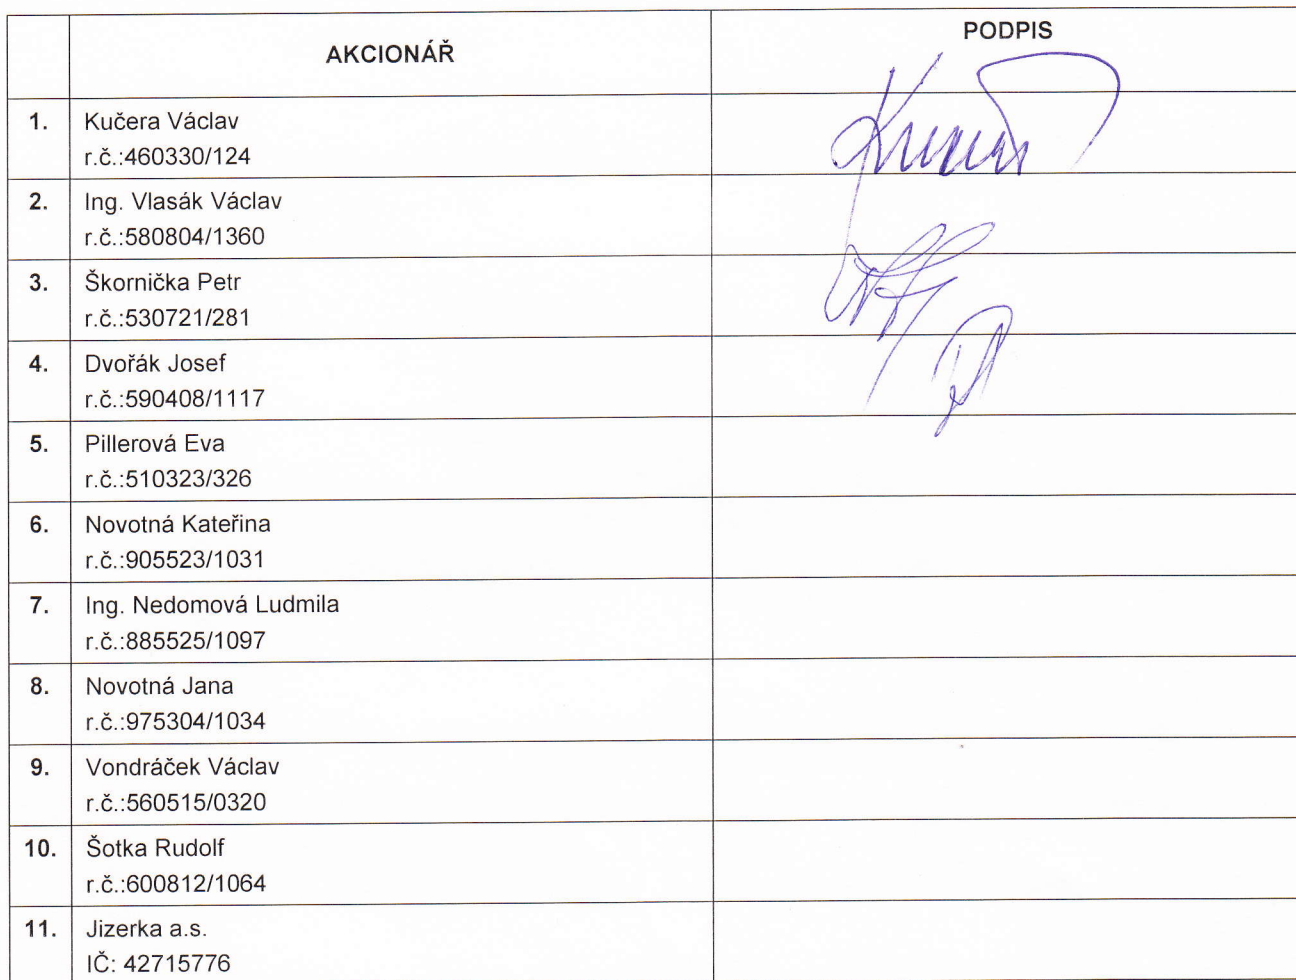 AKCIONÁŘ
PODPIS
1.
Kučera Václav
r.č.:460330/124
2.
Ing. Vlasák Václav
r.č.:580804/1360
3.
Škornička Petr
r.č.:530721/281
4.
Dvořák Josef
r.č.:590408/1117
5.
Pillerová Eva
r.č.:510323/326
6.
Novotná Kateřina
r.č.:905523/1031
7.
Ing. Nedomová Ludmila
r.č.:885525/1097
8.
Novotná Jana
r.č.:975304/1034
9.
Vondráček Václav
r.č.:560515/0320
10.
Šotka Rudolf
r.č.:600812/1064
11.
Jizerka a.s.
IČ: 42715776